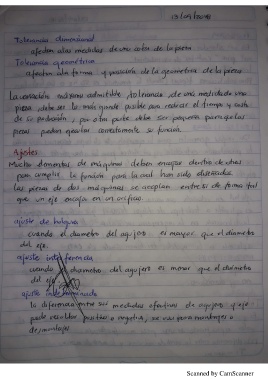 Tolerancia dimensional
afectan a las medidas de una cota de la pieza
Tolerancia geométrica
afectan a la forma y posición de la geometría de la pieza
La variación máxima admitible, tolerancia, de una medida de una
pieza, debe ser lo más grande posible para reducir el tiempo y costo
de su producción, por otra parte debe ser pequeña para que las
piezas puedan ejecutar correctamente su función.
Ajustes
Muchos elementos de máquinas deben encajar dentro de otros
para cumplir la función para la cual han sido diseñados
las piezas de dos máquinas se acoplan entre si de forma tal
que un eje encaja en un orificio.
ajuste de holgura
cuando el diametro del agujero es mayor que el diametro
del eje.
ajuste interferencia
cuando diametro del agujero es menor que el diametro
del eje
ajuste indeterminado
la diferencia entre las medidas efectivas de agujero y eje
puede resultar positiva o negativa, se usa para montajes o
desmontajes
Scanned by CamScanner